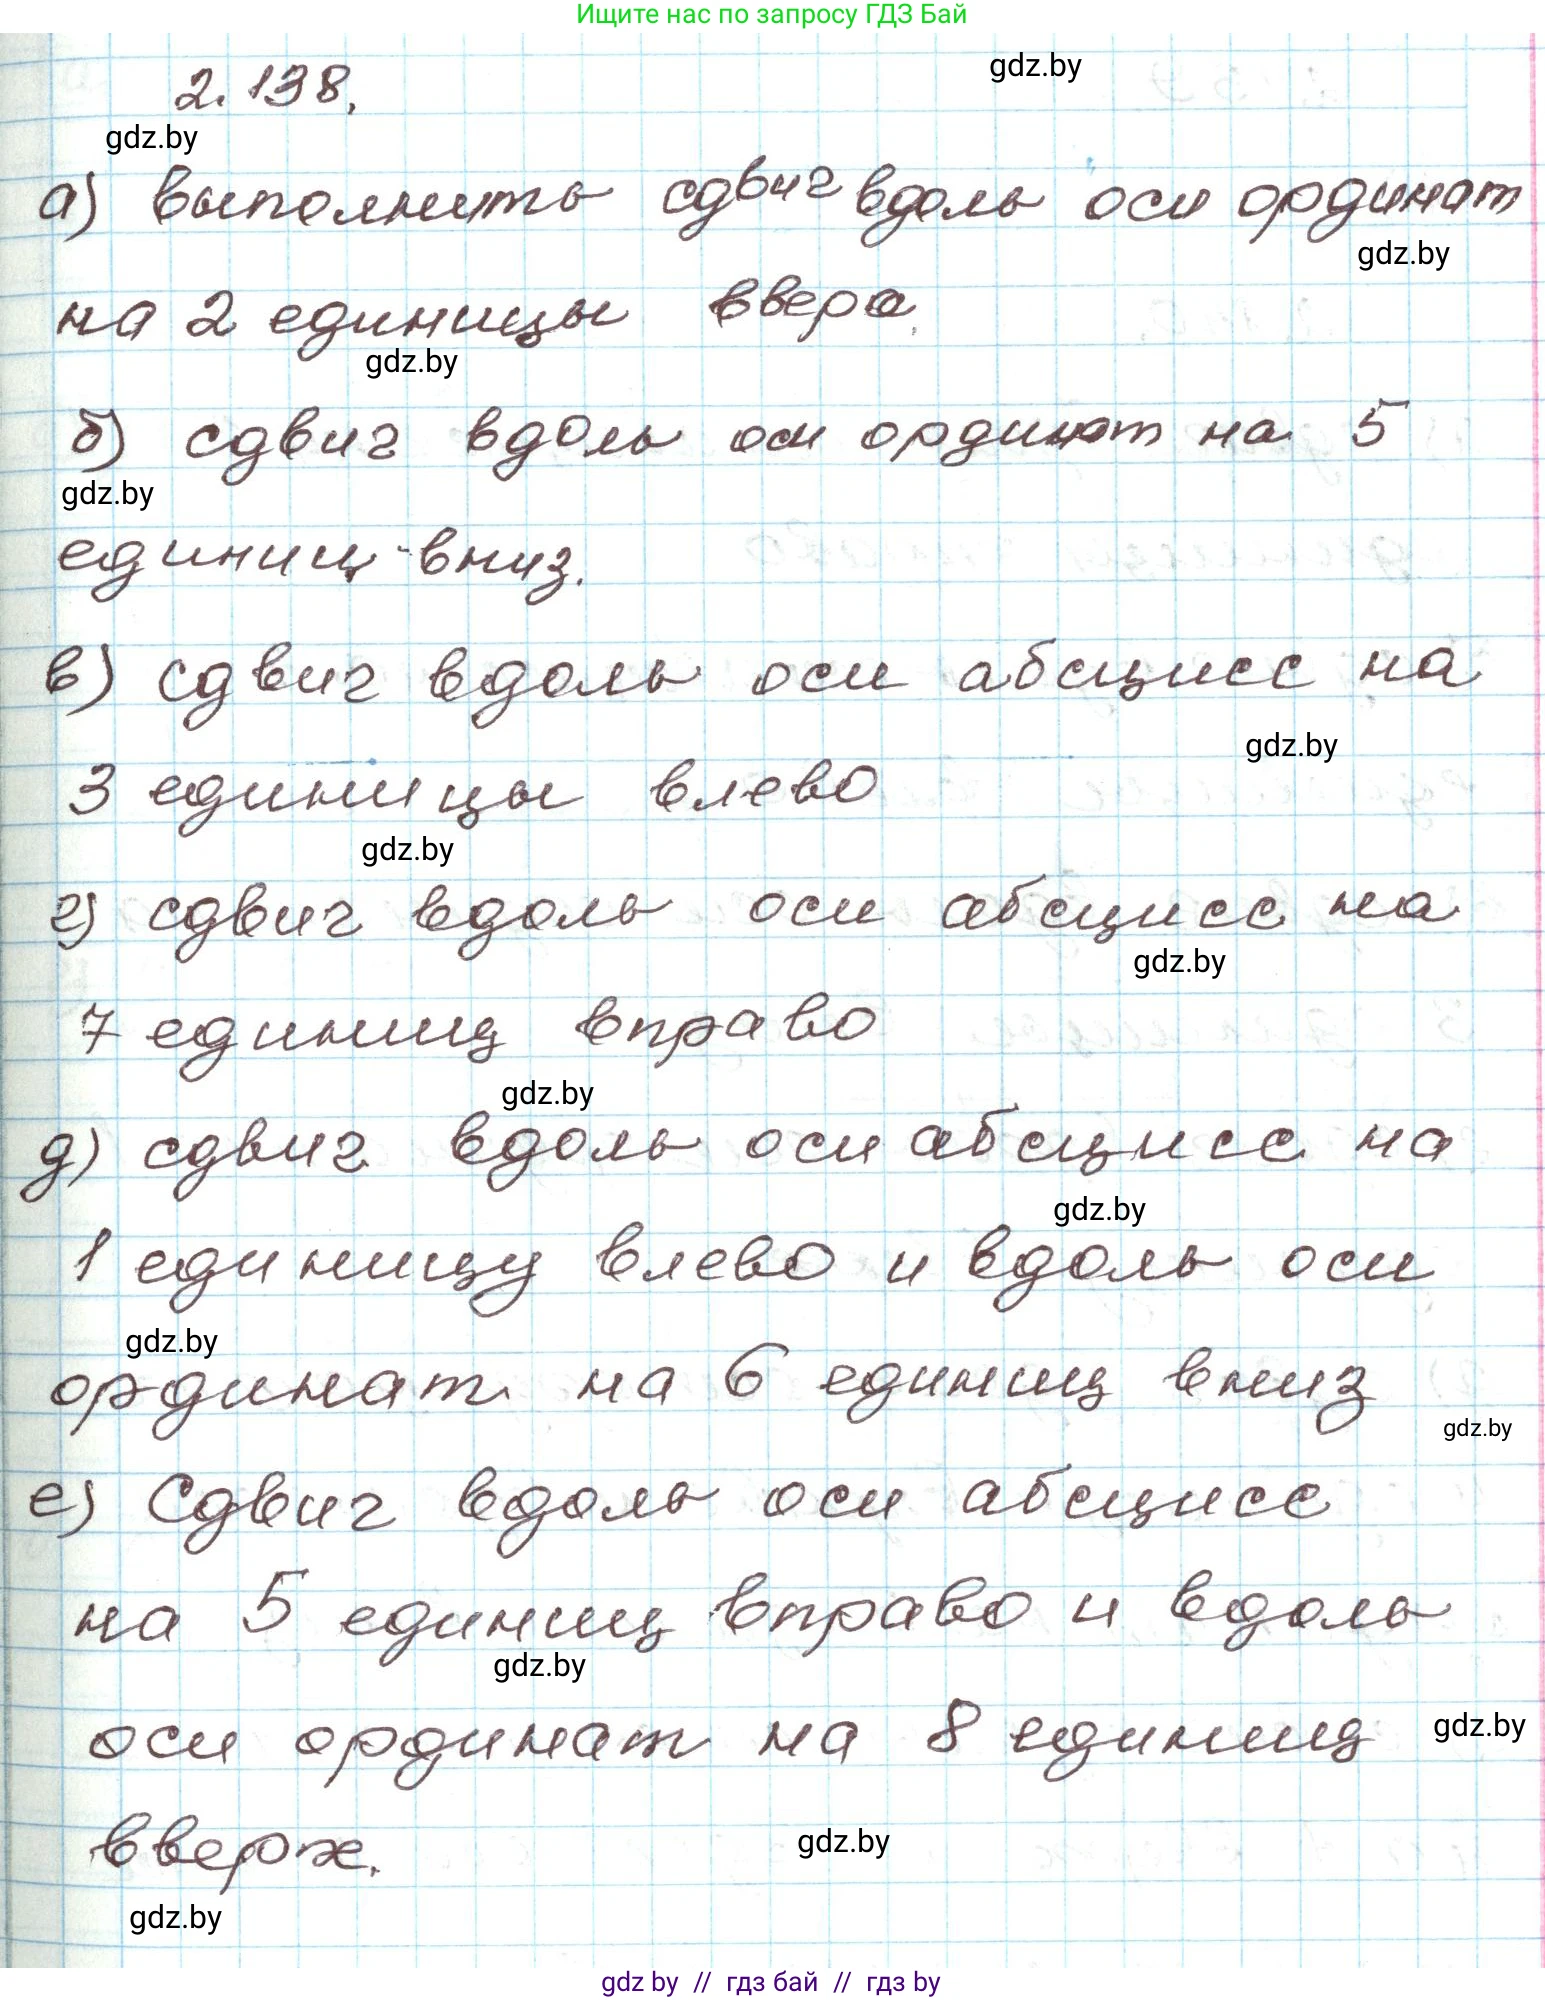 Ищите нас по запросу ГДЗ Бай
2.138.
gdz.by
gdz.by
а) выполнить сдвиг вдоль оси ординат
gdz.by
на 2 единицы вверх
gdz.by
б) сдвиг вдоль оси ординат на 5
gdz.by
единиц вниз.
в) сдвиг вдоль оси абсцисс на
gdz.by
3 единицы влево
gdz.by
г) сдвиг вдоль оси абсцисс на
gdz.by
7 единиц вправо
gdz.by
д) сдвиг вдоль оси абсцисс на
gdz.by
1 единицу влево и вдоль оси
gdz.by
ординат на 6 единиц вниз
gdz.by
е) Сдвиг вдоль оси абсцисс
на 5 единиц вправо и вдоль
gdz.by
оси ординат на 8 единиц
gdz.by
вверх.
gdz.by
gdz.by
gdz by // гдз бай // гдз by